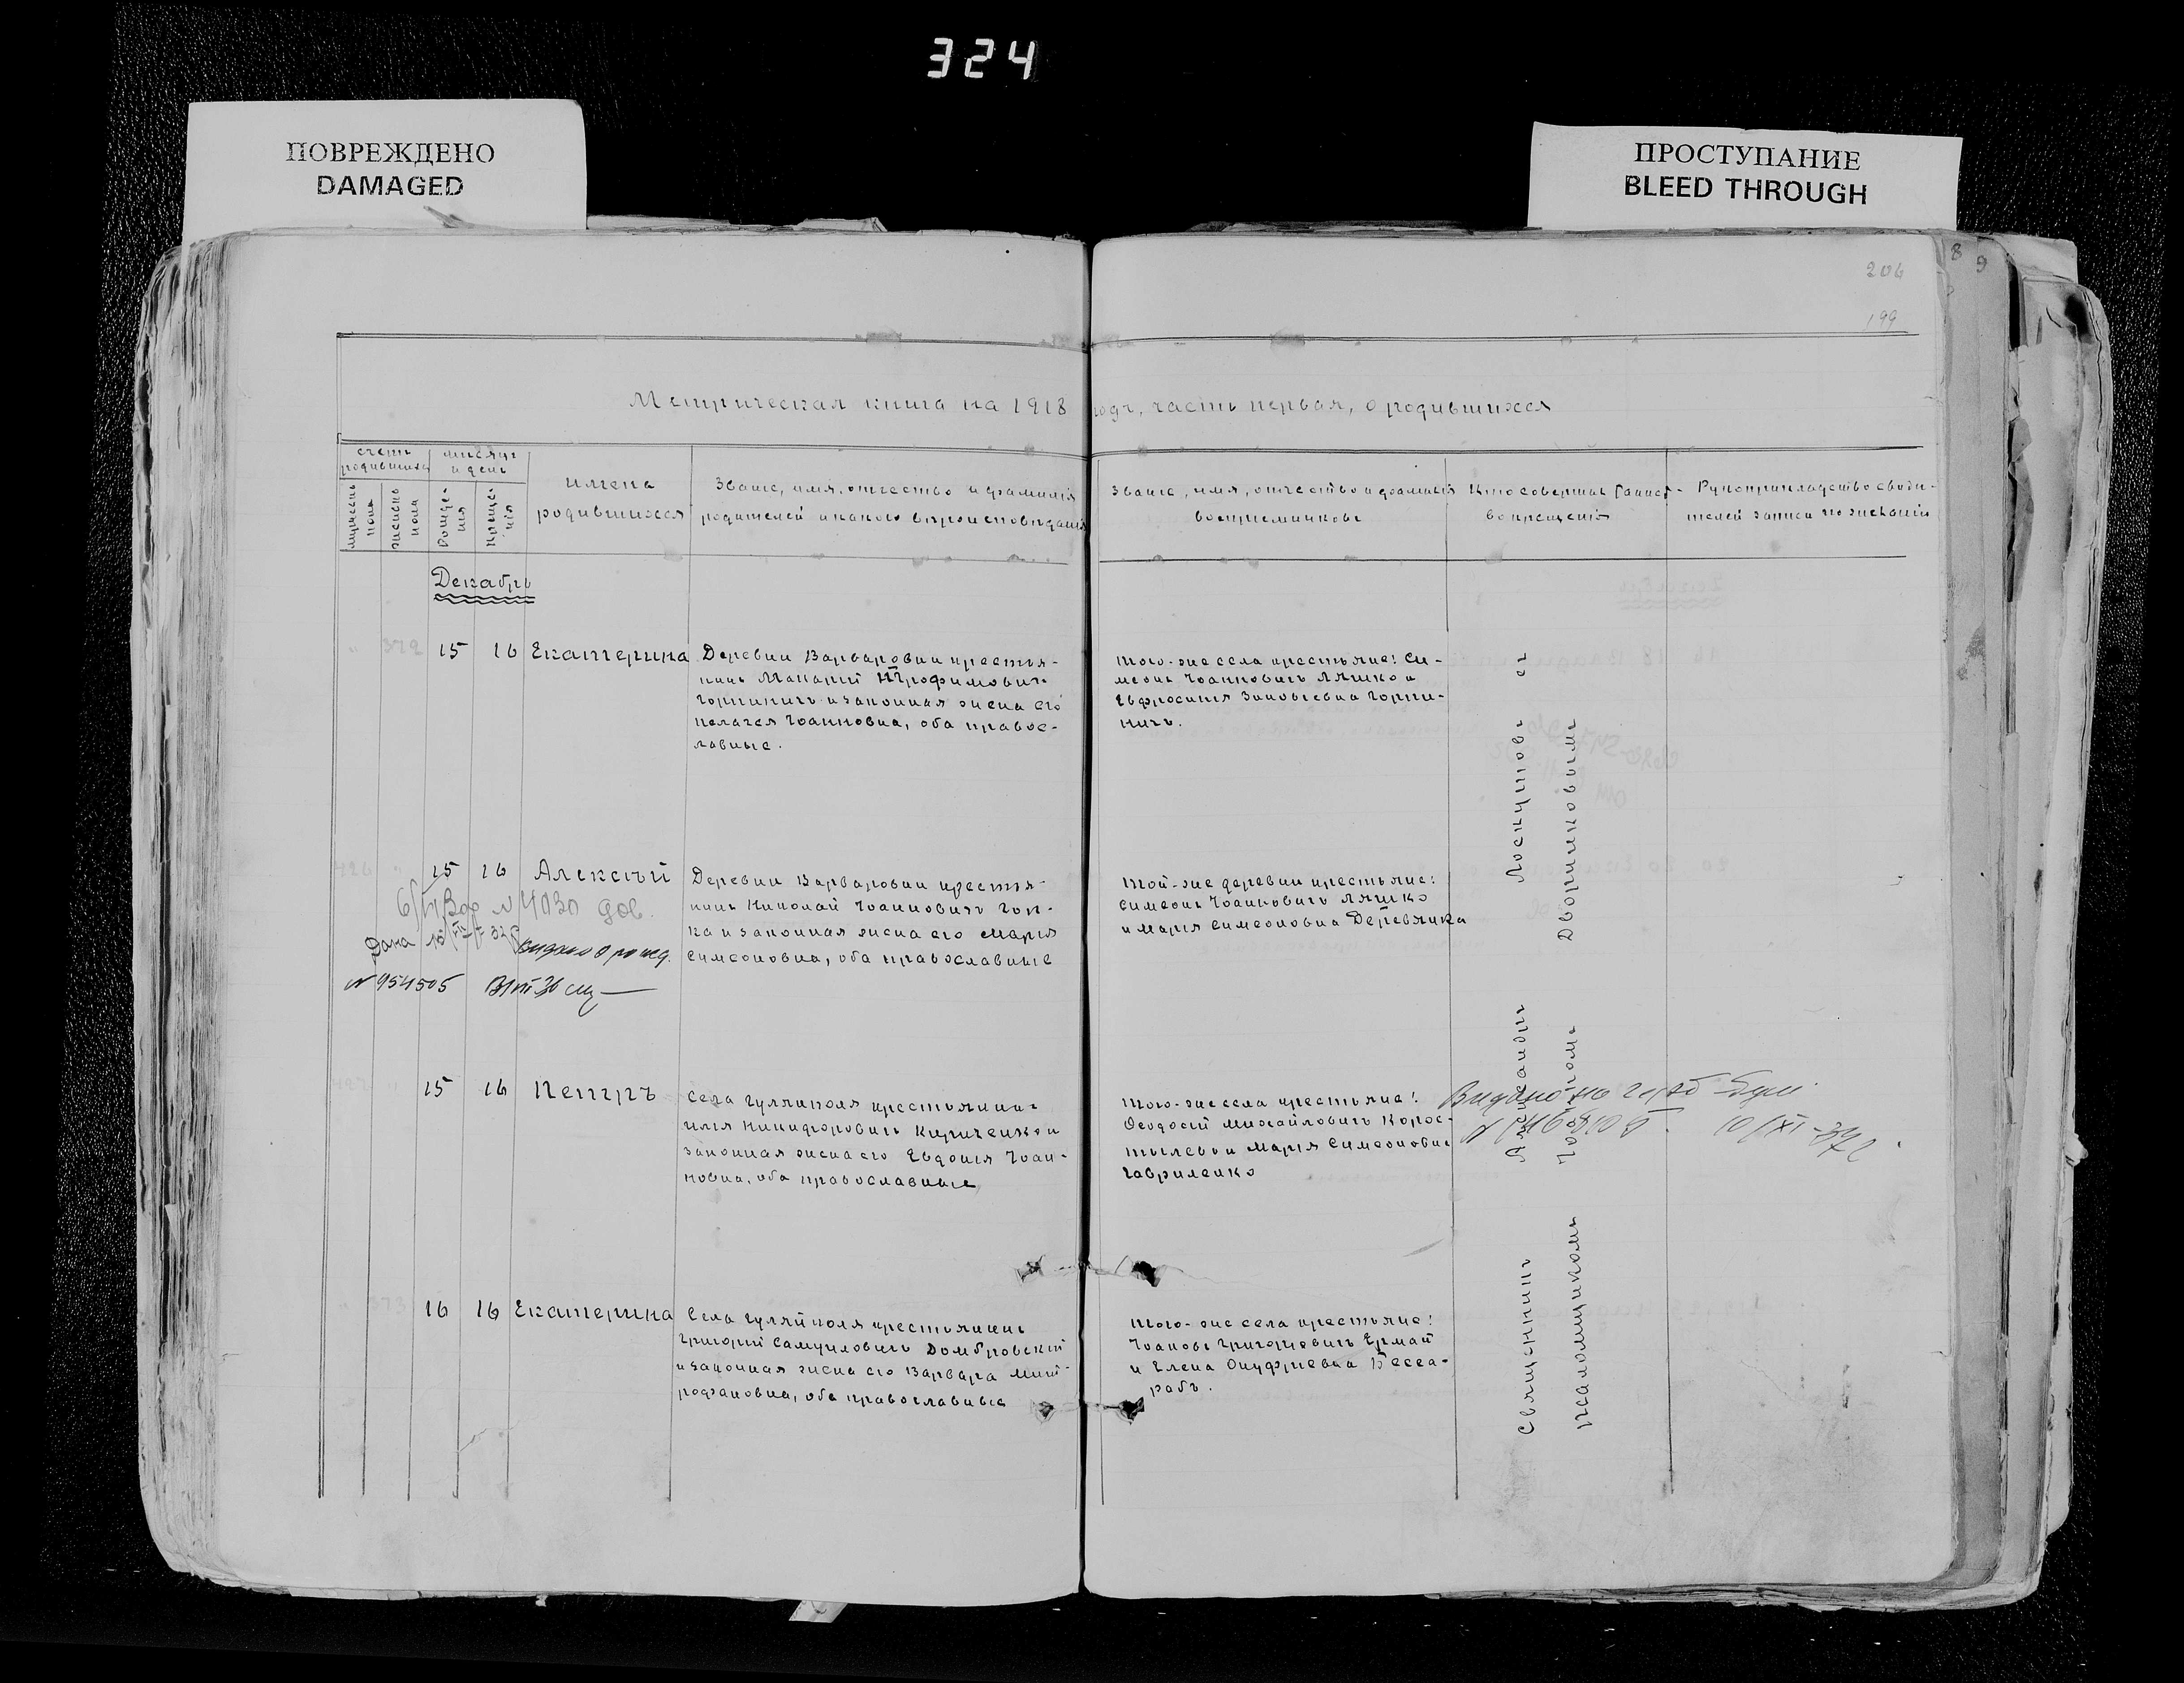 324
ПОВРЕЖДЕНО
DAMAGED
ПРОСТУПАНИЕ
BLEED THROUGH
89
206
199
Метрическая книга на 1918 годъ, часть первая, о родившихся
счетъ родившихся
мѣсяцъ и день
мужескъ полъ
женскъ пола
Рожде-
нія
Креще-
нія
имена
родившихся
Званіе, имя, отчество и фамилія
родителей и какого вѣроисповѣданія
Званіе, имя, отчество и фамилія
воспріемниковъ
Кто совершалъ таинст-
во крещенія
Рукоприкладство свидѣ-
телей записи по желанію
Декабрь
372 15 16 Екатерина
Деревни Варваровки крестья-
нинъ Макарій Трофимовичъ
Горпиничъ и законная жена его
Пелагея Іоанновна, оба правос-
лавные.
того-же села крестьяне: Си-
меонъ Іоанновичъ Ляшко и
Евфросинія Зиновіевна Горпи-
ничъ.
426 15 16 Алексѣй
Деревни Варваровки крестья-
нинъ Николай Іоанновичъ Гон-
ка и законная жена его Марія
Симеоновна, оба православные
той-же деревни крестьяне:
Симеонъ Іоанновичъ Ляшко
и Марія Симеоновна Деревянка
№ 4030 дов.
Дана
№ 954505
427 15 16 Петръ
Села Гуляйполя крестьянинъ
Илія Никифоровичъ Кириченко и
законная жена его Евдокія Іоан-
новна, оба православные
того-же села крестьяне:
Феодосій Михайловичъ Корос-
тылевъ и Марія Симеоновна
Гавриленко
Видано
373 16 16 Екатерина
Села Гуляйполя крестьянинъ
Григорій Самуиловичъ Домбровскій
и законная жена его Варвара Мит-
рофановна, оба православные
того-же села крестьяне:
Іоаннъ Григорьевичъ Ермай
и Елена Онуфріевна Бесса-
рабъ.
Священникъ Александръ Лоскутовъ съ
псаломщикомъ Іоанномъ Дворниковымъ